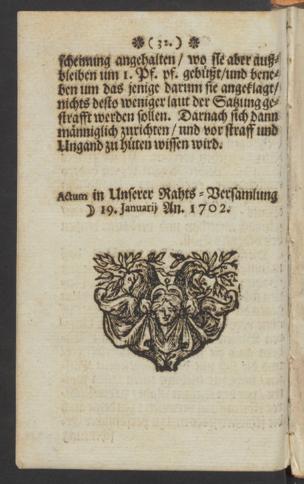 ❋ (32.) ❋
scheinung angehalten / wo sie aber auß-
bleiben um 1. Pf. pf. gebüßt / und bene-
ben um das jenige darum sie angeklagt /
nichts desto weniger laut der Satzung ge-
strafft werden sollen. Darnach sich dann
männiglich zurichten / und vor straff und
Ungnad zu hüten wissen wird.
Actum in Unserer Rahts-Versamlung
☽ 19. Januarij An. 1702.